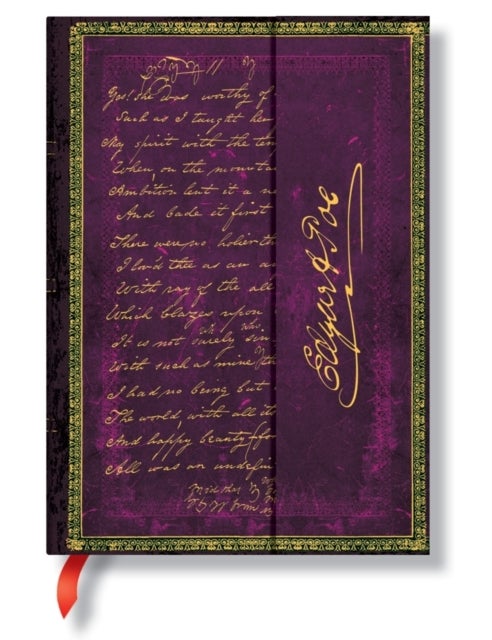 Yes! she was worthy of
Such as I taught her
My spirit with the tem
When, on the mountai
Ambition lent it a ne
And bade it first
There were no holier th
I lov'd thee as an a
With ray of the all
Which blazes upon
It is not surely sin
With such as mine
I had no being but
The world with all it
And happy beauty (for
All was an undefin
Edgar A Poe